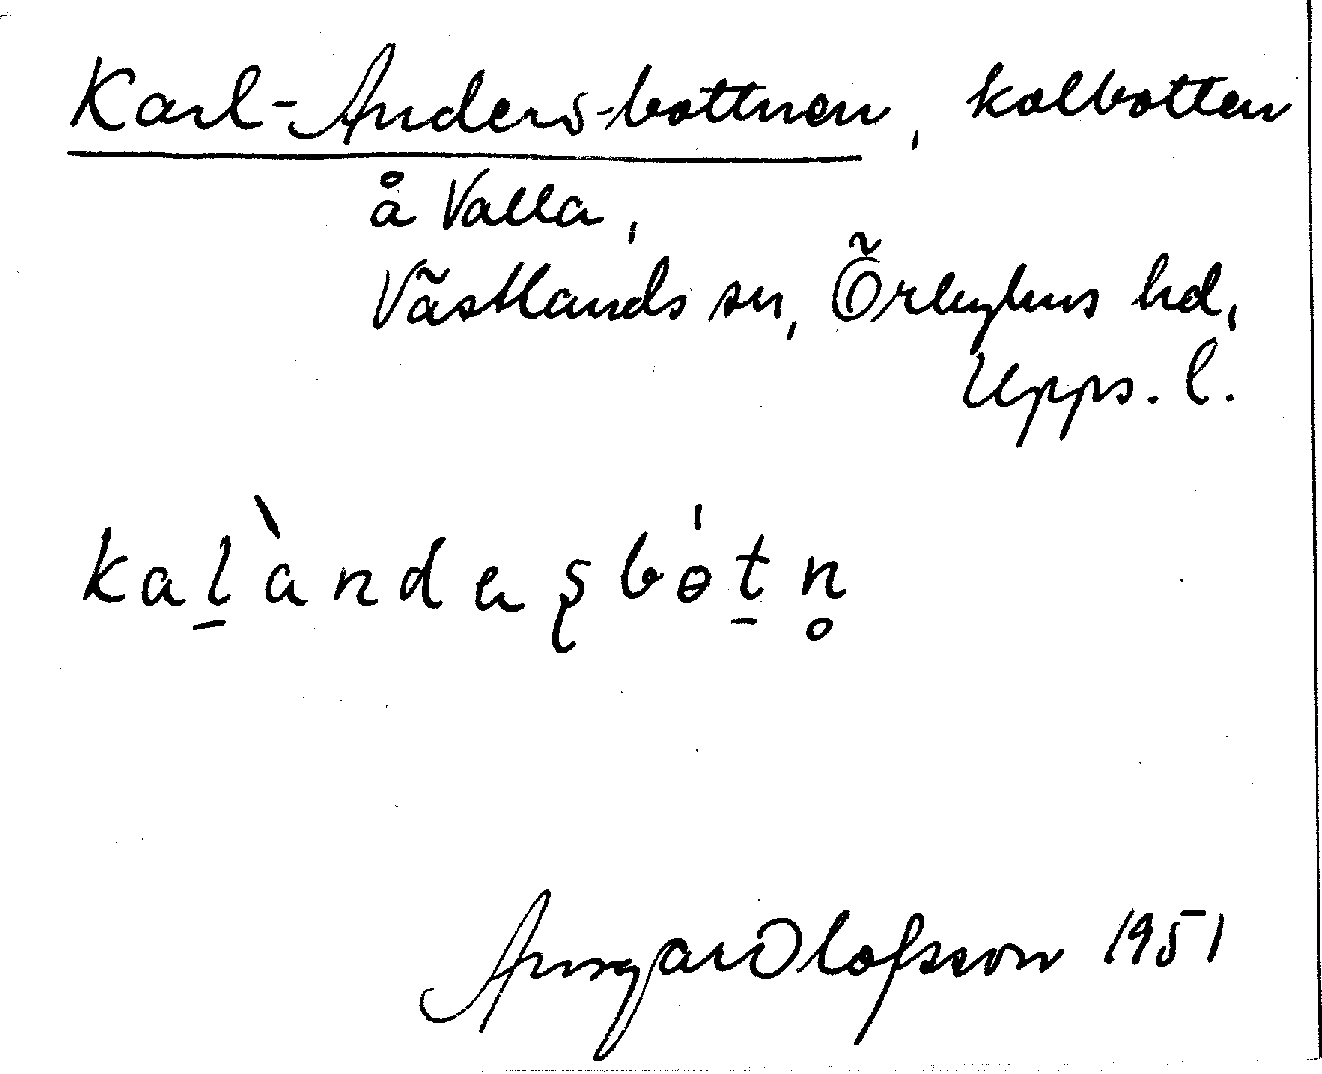 Karl-Anders-bottnen, kolbotten
å Valla,
Västlands sn, Örbyhus hd,
Upps. l.
kal̠àndeʂbɵ́t̠n̥
Ansgar Olofsson 1951